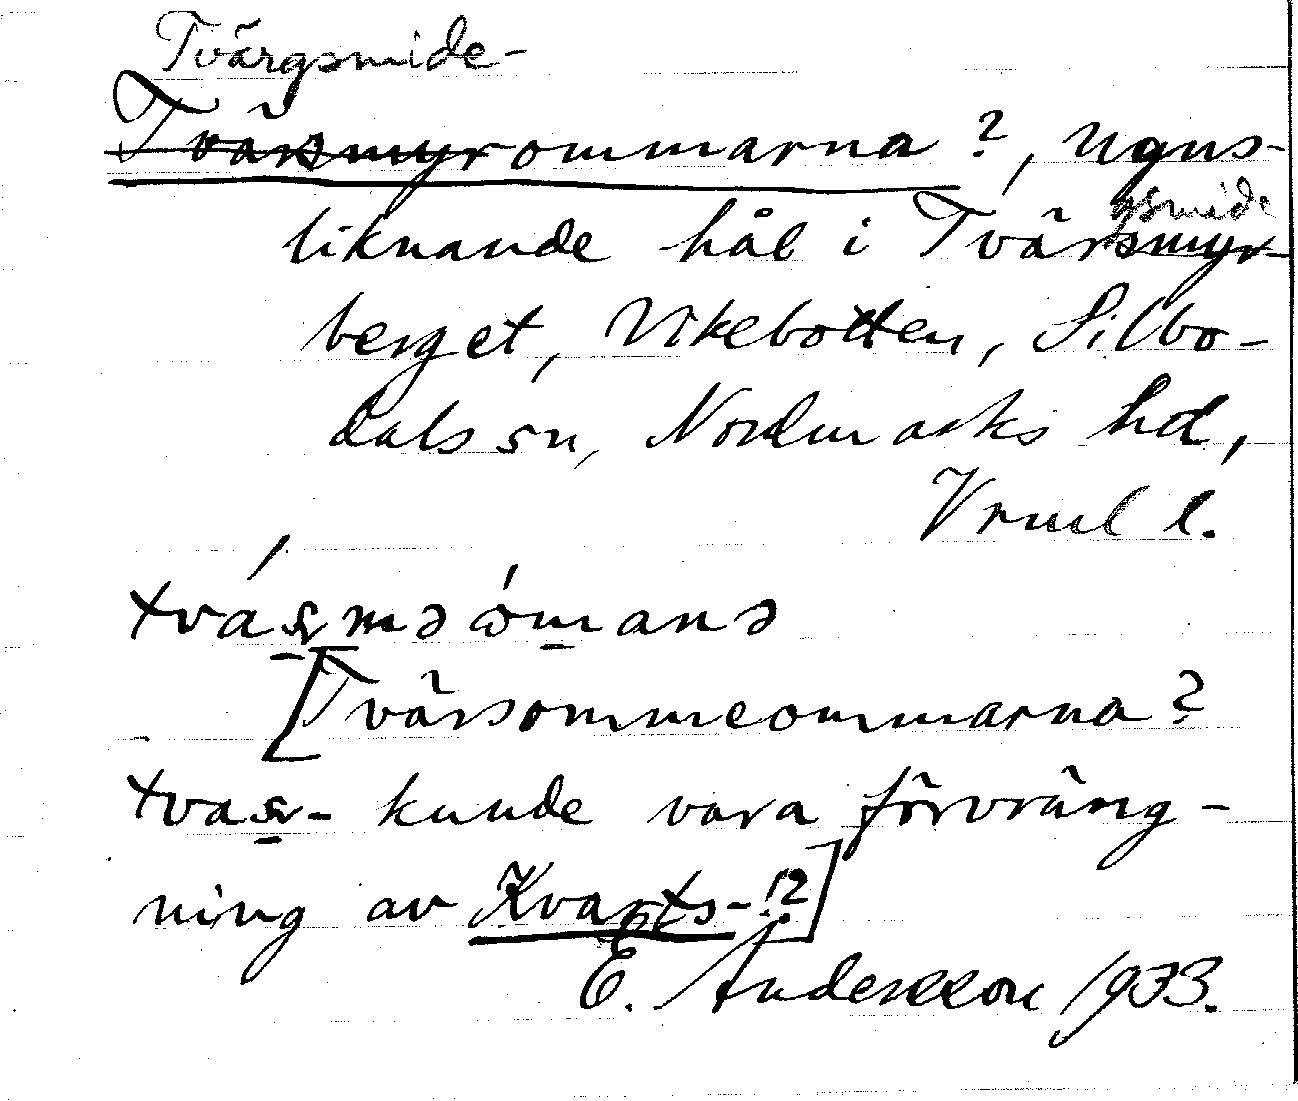 Tvärgsmide-
Tvärsmyrommarna?, Ugns-
gsmide
liknande hål i Tvärsmyr-
berget, Vikebotten, Silbo-
dals sn, Nordmarks hd,
Vrml l.
tvásmə ómanə
[Tvärsommeommarna?
tvas- kunde vara förvräng-
ning av Kvarts-!?]
E. Andersson 1933.